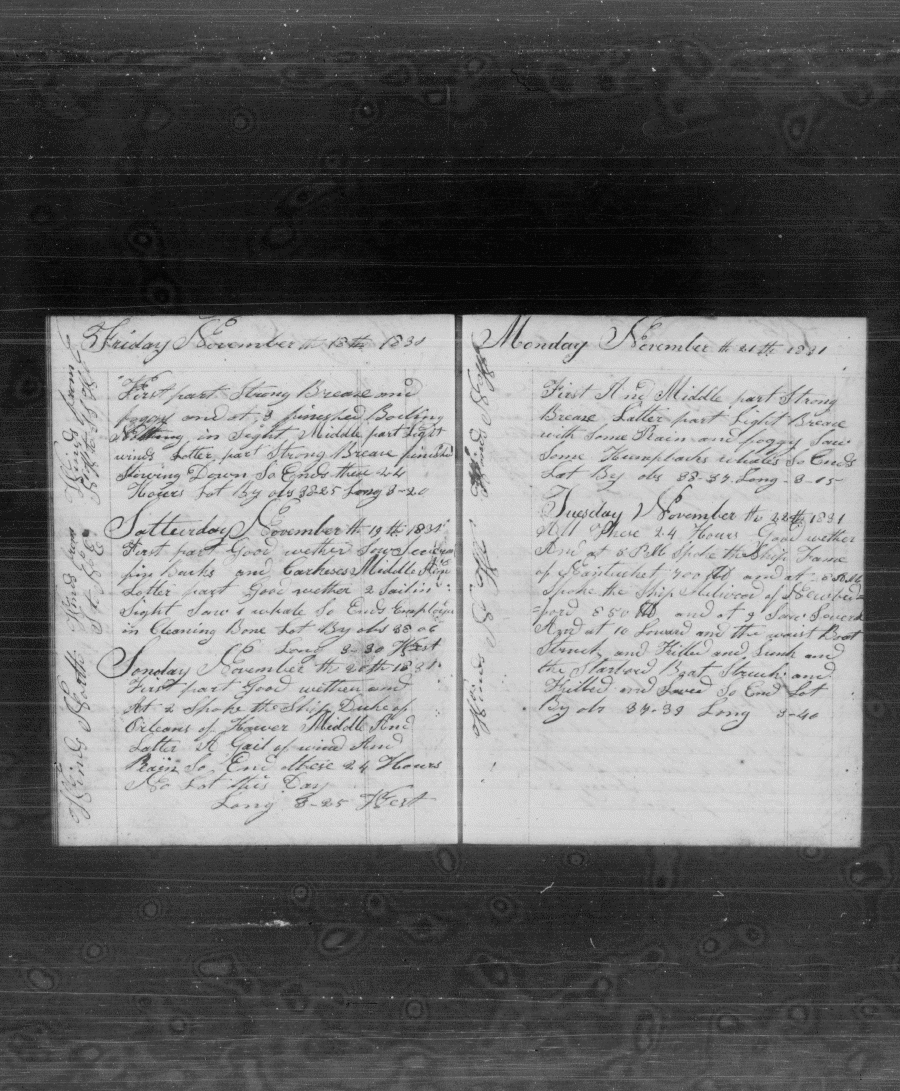 Friday November th 18th 1831
First part Strong Brease and
foggy and at 3 finished Boiling
Nothing in Sight Middle part Light
winds Latter part Strong Brease finished
Stowing Down So Ends these 24
Hours Lat By obs 38-25 Long 3-20
Winds from
Satturday November th 19th 1831
First part Good wether Saw Several
fin backs and Carkeses Middle And
Latter part Good wether 2 Sail in
Sight Saw 1 whale So Ends Employed
in Cleaning Bone Lat By obs 38 00
Long 3-30 West
Winds from
Sonday November th 20th 1831
First part Good wether and
At 2 Spoke the Ship Duke of
Orleans of Haver Middle And
Latter A Gail of wind And
Rain So End these 24 Hours
No Lat this Day
Long 3-25 West
Winds South
Monday November th 21th 1831
First And Middle part Strong
Brease Latter part Light Brease
with Some Rain and foggy Saw
Some Humpbacks whales So Ends
Lat By obs 38-34 Long 3-05
Tuesday November th 22th 1831
All These 24 Hours Good wether
And at 5 PM Spoke the Ship Fame
of Nantucket 700 bb and at 6 PM
Spoke the Ship of Newbed=
=ford 850 bb and at 9 Saw Several
And at 10 Loward and the waist Boat
Struck and Killed and Sunk and
the Starbord Boat Struck and
Killed and Saved So End Lat
By obs 37-39 Long 3-40
Winds So West